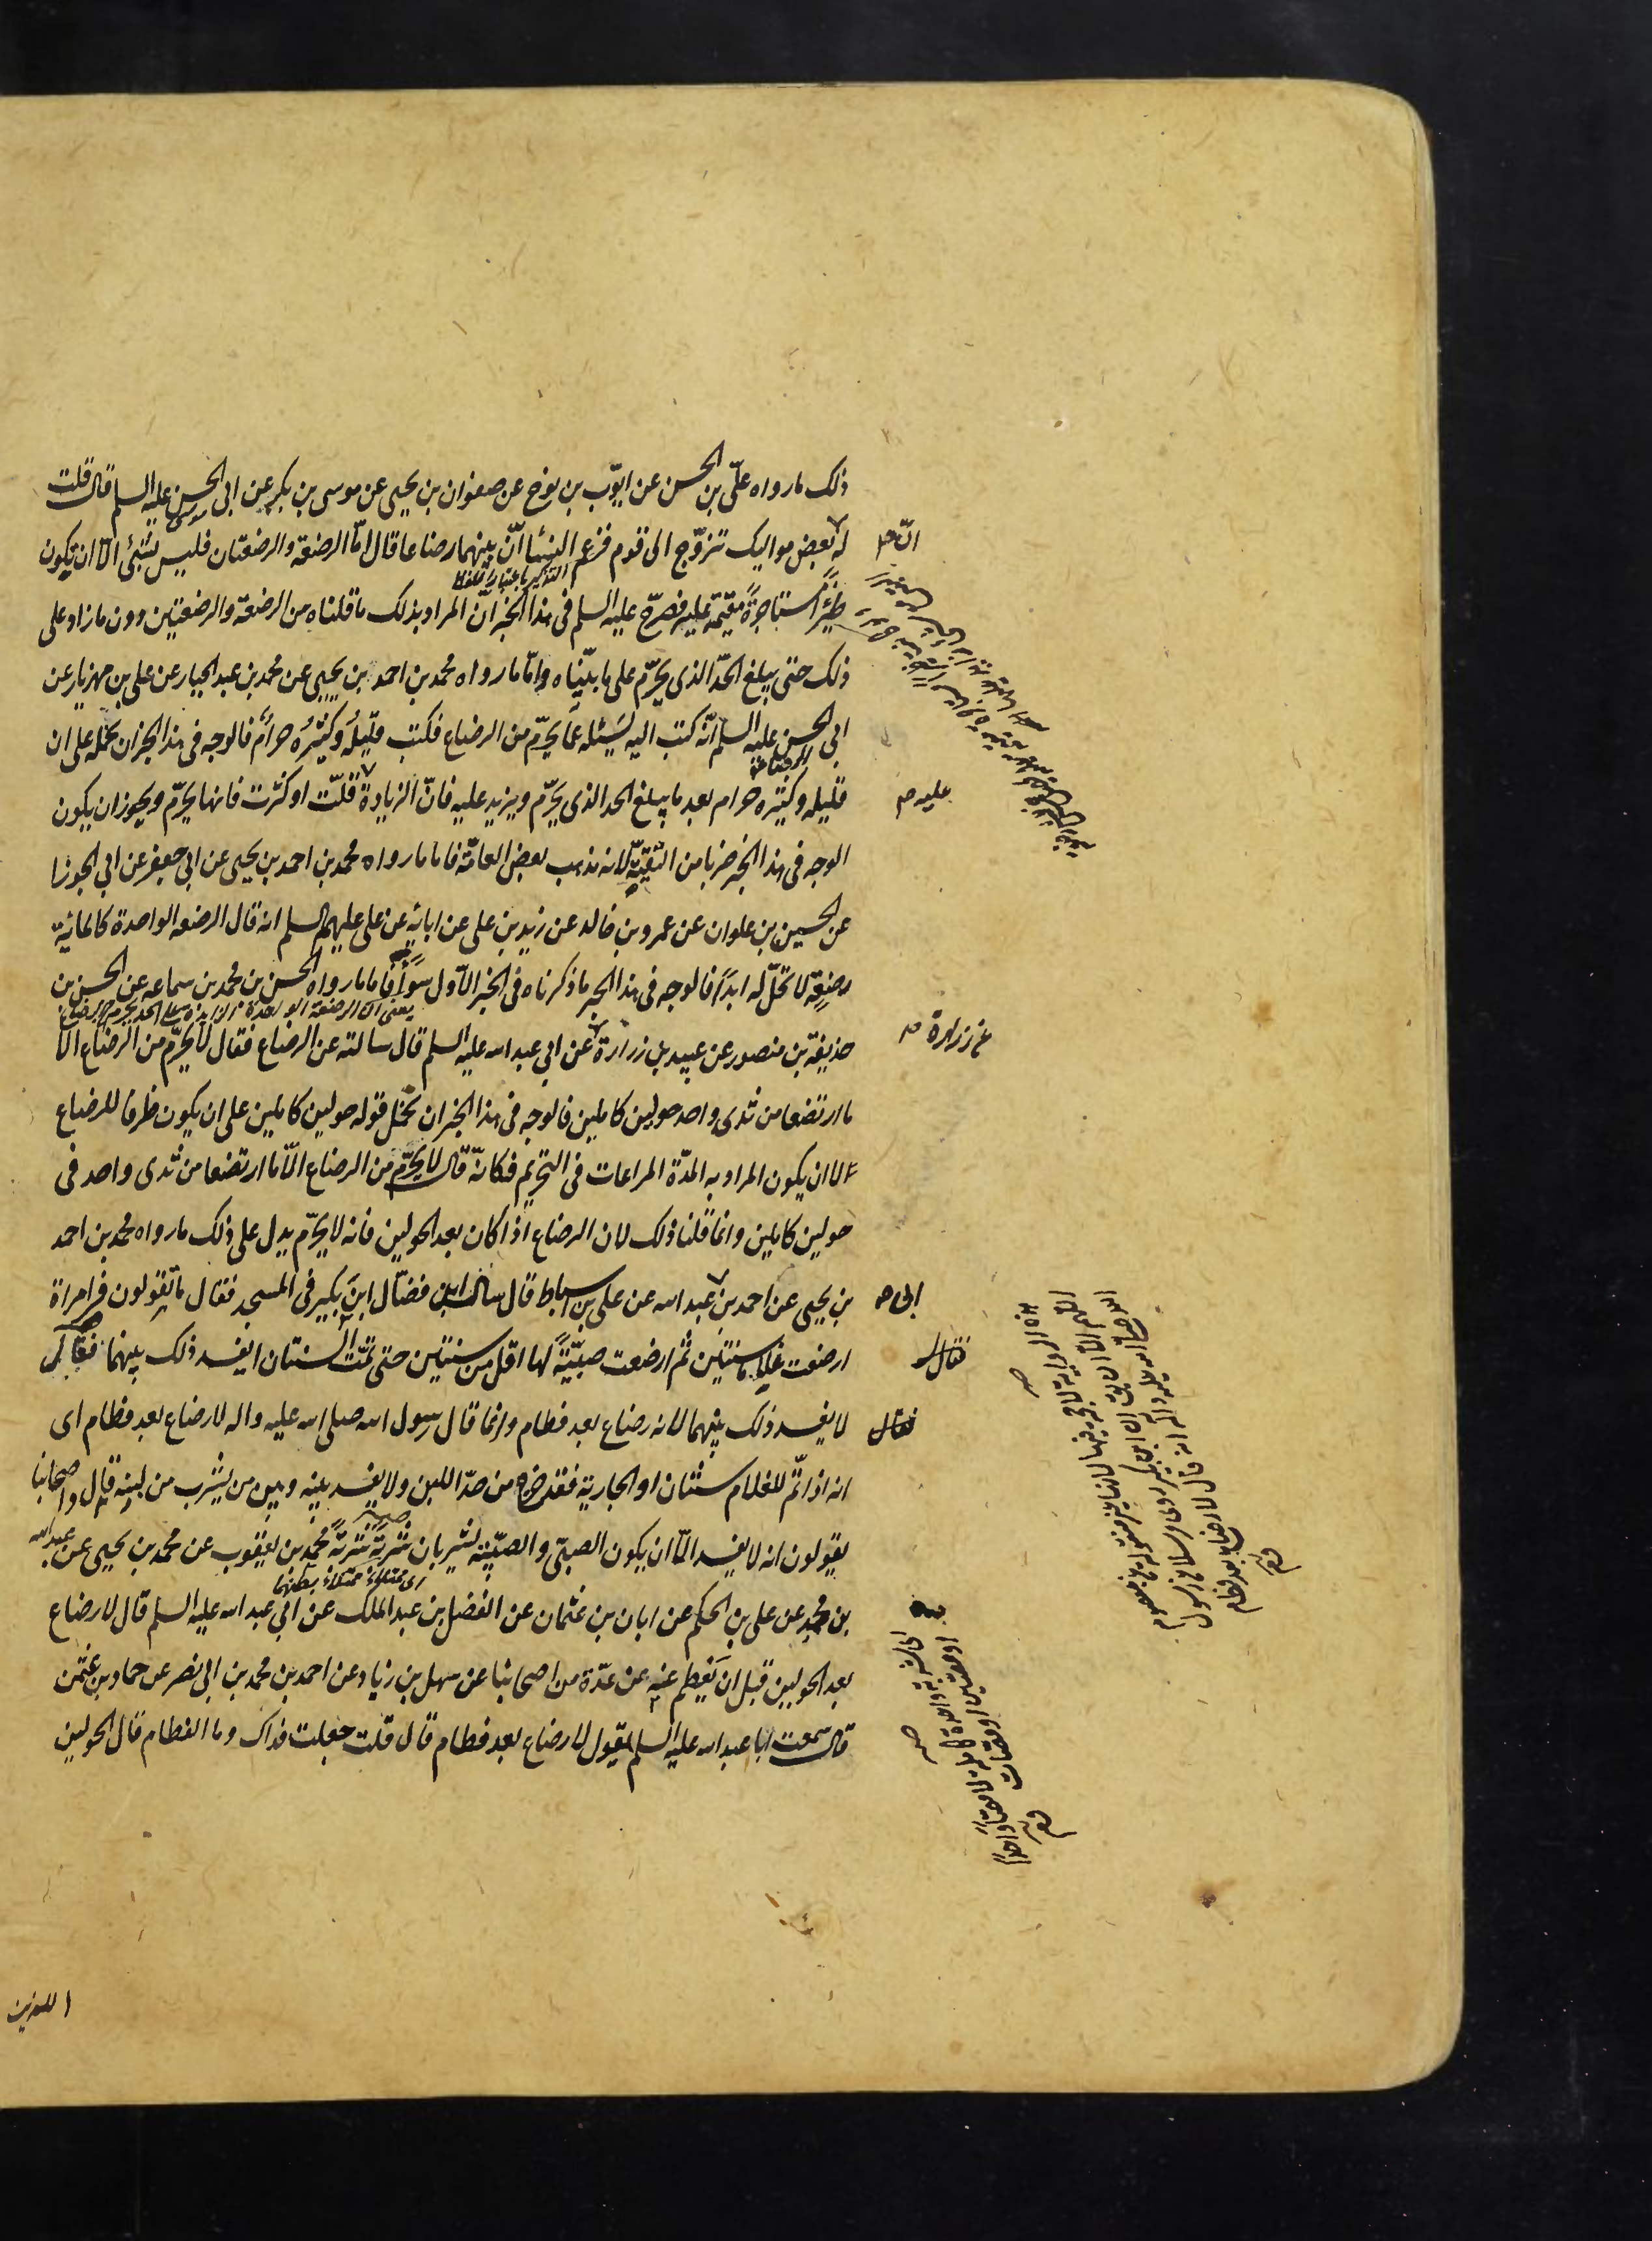 ذلك ما رواه علّي بن الحسن عن ايّوب بن نوح عن صفوان بن يحيى عن موسى بن بكر عن ابى الحسن عليه السلم قال قلت
موسى
له بعض مواليك تزوّج الى قوم فزعم النسا انّ بينهما رضاعا قال امّا الرضعة والرضعتان فليس بشئ الّا ان يكون
انّ
ظئراً مستاجرةً مقيمة عليه فصرّح عليه السلم فى هذا الخبر انّ المراد بذلك ما قلناه من الرضعة والرضعتين دون ما زاد على
ذلك حتى يبلغ الحدّ الذى يحرّم على ما بيّناه وامّا ما رواه محمد بن احمد بن يحيى عن محمد بن عبد الجبار عن على بن مهزيار عن
ابى الحسن عليه السلم انّه كتب اليه يسئله عمّا يحرّم من الرضاع فكتب قليلُه وكثيرُه حرامٌ فالوجه فى هذا الخبر ان نحمله على ان
الرضاعة
قليله وكثيره حرام بعد ما يبلغ الحد الذى يحرّم ويزيد عليه فانّ الزيادة قلّت او كثرت فانها يحرّم ويجوز ان يكون
عليه
الوجه فى هذا الخبر ضربا من التقيّة لانه مذهب بعض العامّة فاما ما رواه محمد بن احمد بن يحيى عن ابى جعفر عن ابى الجوزا
عن الحسين بن علوان عن عمرو بن خالد عن زيد بن على عن ابائه عن على عليهم السلم انه قال الرضعه الواحدة كالمائية
رضعة لا تحلّ له ابداً فالوجه فى هذا الخبر ما ذكرناه فى الخبر الاوّل سواً فاما ما رواه الحسن بن محمد بن سماعه عن الحسن بن
يعنى ان الرضعة الواحدة الزايدة على الحد يحرم
حذيفة بن منصور عن عبيد بن زرارة عن ابى عبد الله عليه السلم قال سالته عن الرضاع فقال لا يحرّم من الرضاع الّا
عن زرارة
ما ارتضعا من ثدى واحد حولين كاملين فالوجه فى هذا الخبر ان نحمل قوله حولين كاملين على ان يكون ظرفا للرضاع
لا ان يكون المراد به المدّة المراعات فى التحريم فكانّه قال لا يحرّم من الرضاع الّا ما ارتضعا من ثدى واحد فى
حولين كاملين وانما قلنا ذلك لان الرضاع اذا كان بعد الحولين فانه لا يحرّم يدل على ذلك ما رواه محمد بن احمد
بن يحيى عن احمد بن عبد الله عن على بن اسباط قال سال ابن فضّال ابن بكير فى المسجد فقال ما تقولون فى امراة
ابى
ارضعت غلاما سنتين ثم ارضعت صبيّة لها اقل من سنتين حتى تمّت السنتان ايفسد ذلك بينهما فقال
فقال
لا يفسد ذلك بينهما لانه رضاع بعد فطام وانما قال رسول الله صلى الله عليه واله لا رضاع بعد فطام اى
فقال
انه اذا تمّ للغلام سنتان او الجارية فقد خرج من حدّ اللبن ولا يفسد بينه وبين من يشرب من لبنه قال واصحابنا
يقولون انه لا يفسد الّا ان يكون الصبّى والصبيّة يشربان شربةً شربةً محمد بن يعقوب عن محمد بن يحيى عن عبد الله
بن محمد عن على بن الحكم عن ابان بن عثمان عن الفضل بن عبد الملك عن ابى عبد الله عليه السلم قال لا رضاع
بعد الحولين قبل ان يفطم عنه عن عدّة من اصحابنا عن سهل بن زياد عن احمد بن محمد بن ابى نصر عن حماد بن عثمن
قال سمعت ابا عبد الله عليه السلم يقول لا رضاع بعد فطام قال قلت جعلت فداك وما الفطام قال الحولين